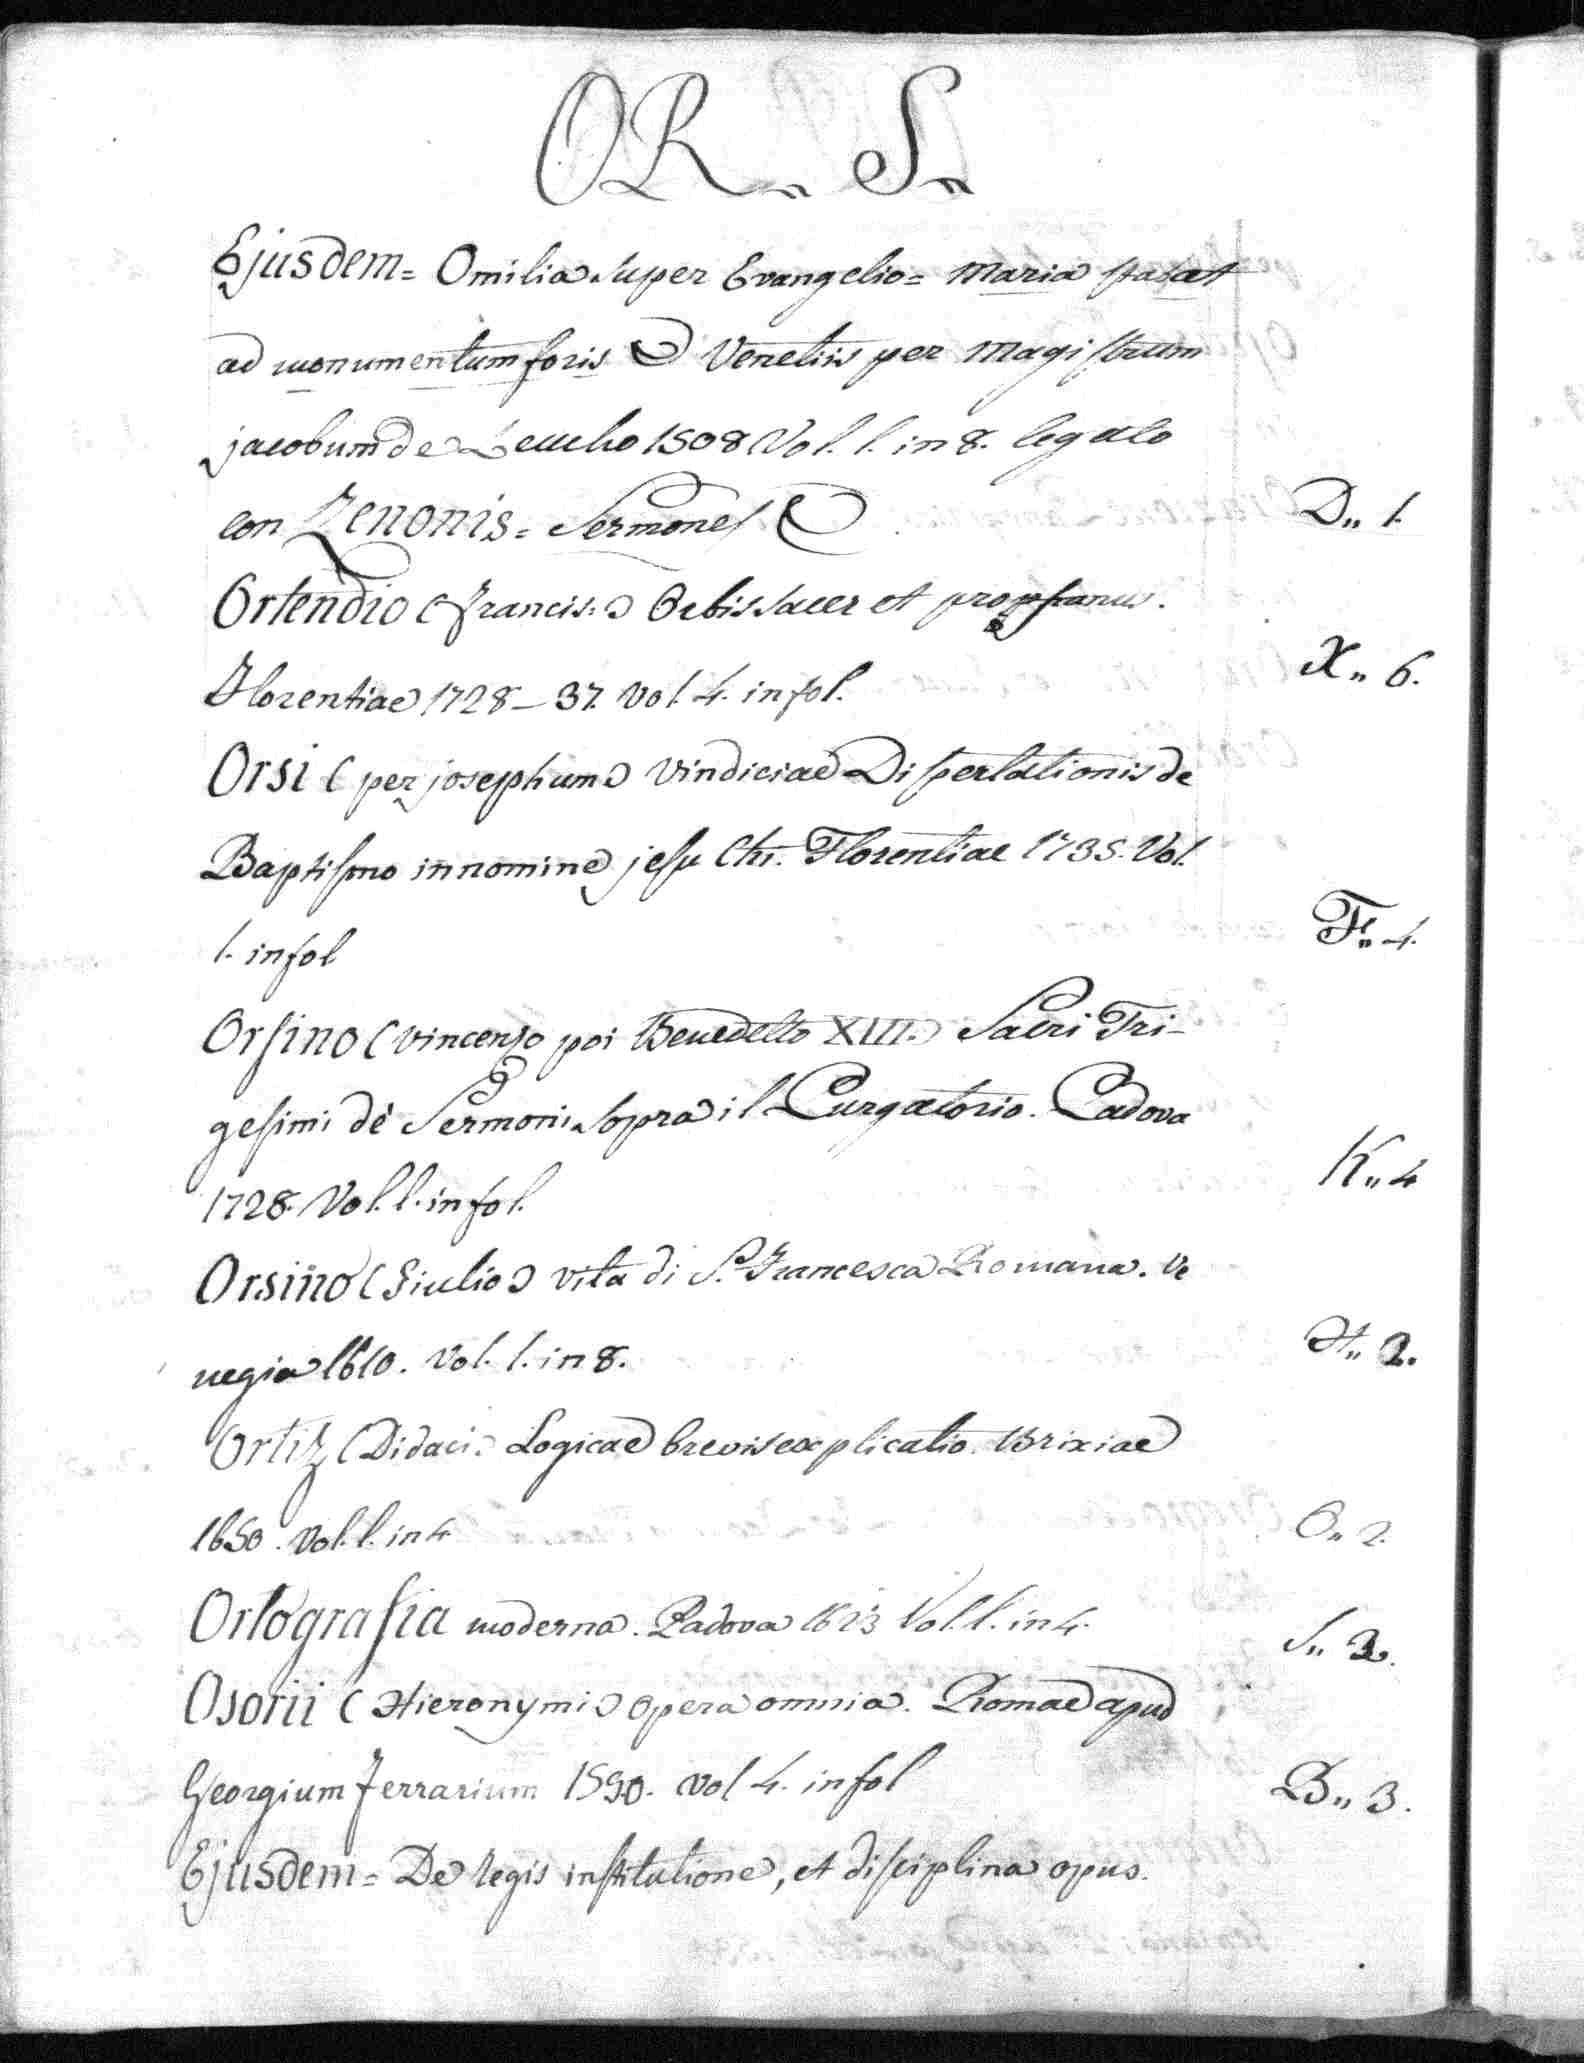 OR„ S„
Ejusdem= Omilia super Evangelio= Maria stabat
ad monumentum foris & Venetiis per Magistrum
jacobum de Leucho 1508 Vol. 1. in 8. legato
con Zenonis= Sermones & D„ 1.
Ortendio (Francis:) Orbis sacer et prophanus.
Florentiae 1728_37. Vol. 4. in fol. X„ 6.
Orsi (per josephum) Vindiciae Dissertationis de
Baptismo in nomine jesu Chr. Florentiae 1735. Vol.
1. in fol F„ 4.
Orsino (Vincenzo poi Benedetto XIII.) Sacri Tri-
gesimi dè Sermoni sopra il Purgatorio. Padova
1728. Vol. 1. in fol. K„ 4
Orsino (Giulio) vita di S. Francesca Romana. Ve
negia 1610. Vol. 1. in 8. H„ 2.
Ortiz (Didaci) Logicae brevis explicatio. Brixiae
1650. Vol. 1. in 4 O„ 2.
Ortografia moderna. Padova Vol. 1. in 4. S„
Osorii (Hieronymi) opera omnia. Romae apud
Georgium Ferrarium 1590. Vol 4. in fol B„ 3.
Ejusdem= De regis institutione, et disciplina opus.